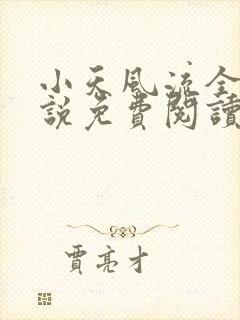 小天風流全
說免費閱讀
賈亮才